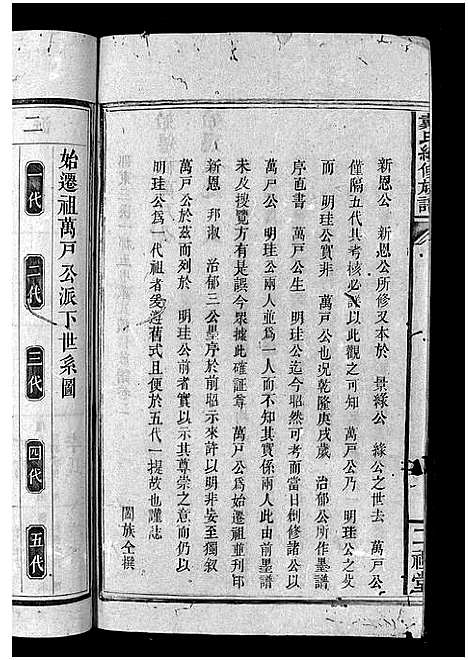 新恩公 新恩公所修又本於 景緣公 緣公之世去 萬戸公
僅隔五代其考核必詳以此觀之可知 萬戸公乃 明珪公之父
而 明珪公實非 萬戸公也况乾隆庚戌歲 治郁公所作墨譜
序直書 萬戸公生 明珪公迄今昭然可考因當日創修諸公以
萬戸公 明珪公兩人並爲一人而不知其實係兩人此次由前墨譜
未及搜覽方有是誤今衆據此確証尊 萬戸公爲始遷祖並刋印
新恩 邦淑 治郁三公墨序於前昭示來許以明非妄至獨叙
萬戸公於茲而列於 明珪公前者實以示其尊崇之意而仍以
明珪公爲一代祖者爰遵舊式且便於五代一提故也謹志
闔族仝撰
始遷祖萬戸公派下世系圖
一代
二代
三代
四代
五代
氏續修族譜